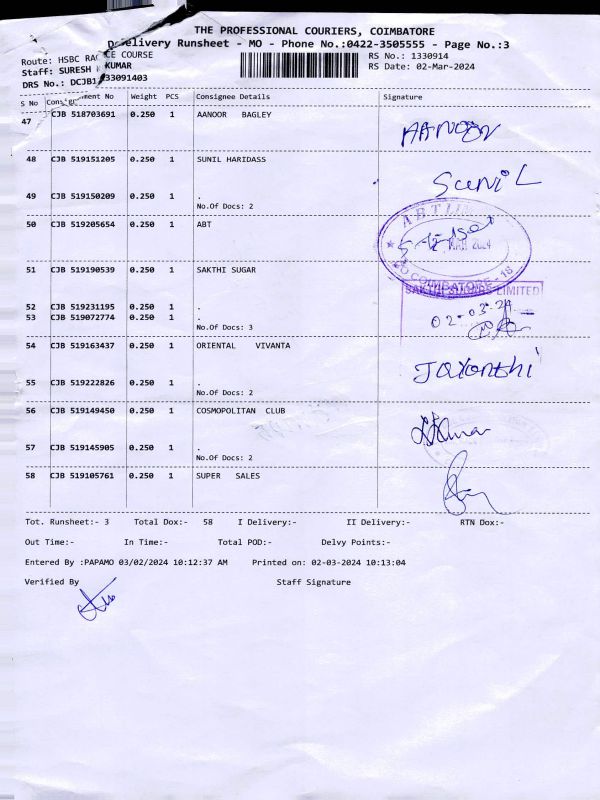 THE PROFESSIONAL COURIERS, COIMBATORE
Delivery Runsheet - MO - Phone No.:0422-3505555 - Page No.:3
Route: HSBC RACE COURSE
RS No.: 1330914
Staff: SURESH KUMAR
RS Date: 02-Mar-2024
DRS No.: DCJB1/33091403
S No Consignment No Weight PCS Consignee Details Signature
47 CJB 518703691 0.250 1 AANOOR BAGLEY
AANOOR
48 CJB 519151205 0.250 1 SUNIL HARIDASS
SuniL
49 CJB 519150209 0.250 1 .
No.Of Docs: 2
50 CJB 519205654 0.250 1 ABT
ABT LIMITED
MAR 2024
COIMBATORE - 18
51 CJB 519190539 0.250 1 SAKTHI SUGAR
SAKTHI SUGARS LIMITED
52 CJB 519231195 0.250 1 .
02-03-24
53 CJB 519072774 0.250 1 .
No.Of Docs: 3
54 CJB 519163437 0.250 1 ORIENTAL VIVANTA
Jayanthi
55 CJB 519222826 0.250 1 .
No.Of Docs: 2
56 CJB 519149450 0.250 1 COSMOPOLITAN CLUB
57 CJB 519145905 0.250 1 .
No.Of Docs: 2
58 CJB 519105761 0.250 1 SUPER SALES
Tot. Runsheet:- 3 Total Dox:- 58 I Delivery:- II Delivery:- RTN Dox:-
Out Time:- In Time:- Total POD:- Delvy Points:-
Entered By :PAPAMO 03/02/2024 10:12:37 AM Printed on: 02-03-2024 10:13:04
Verified By Staff Signature